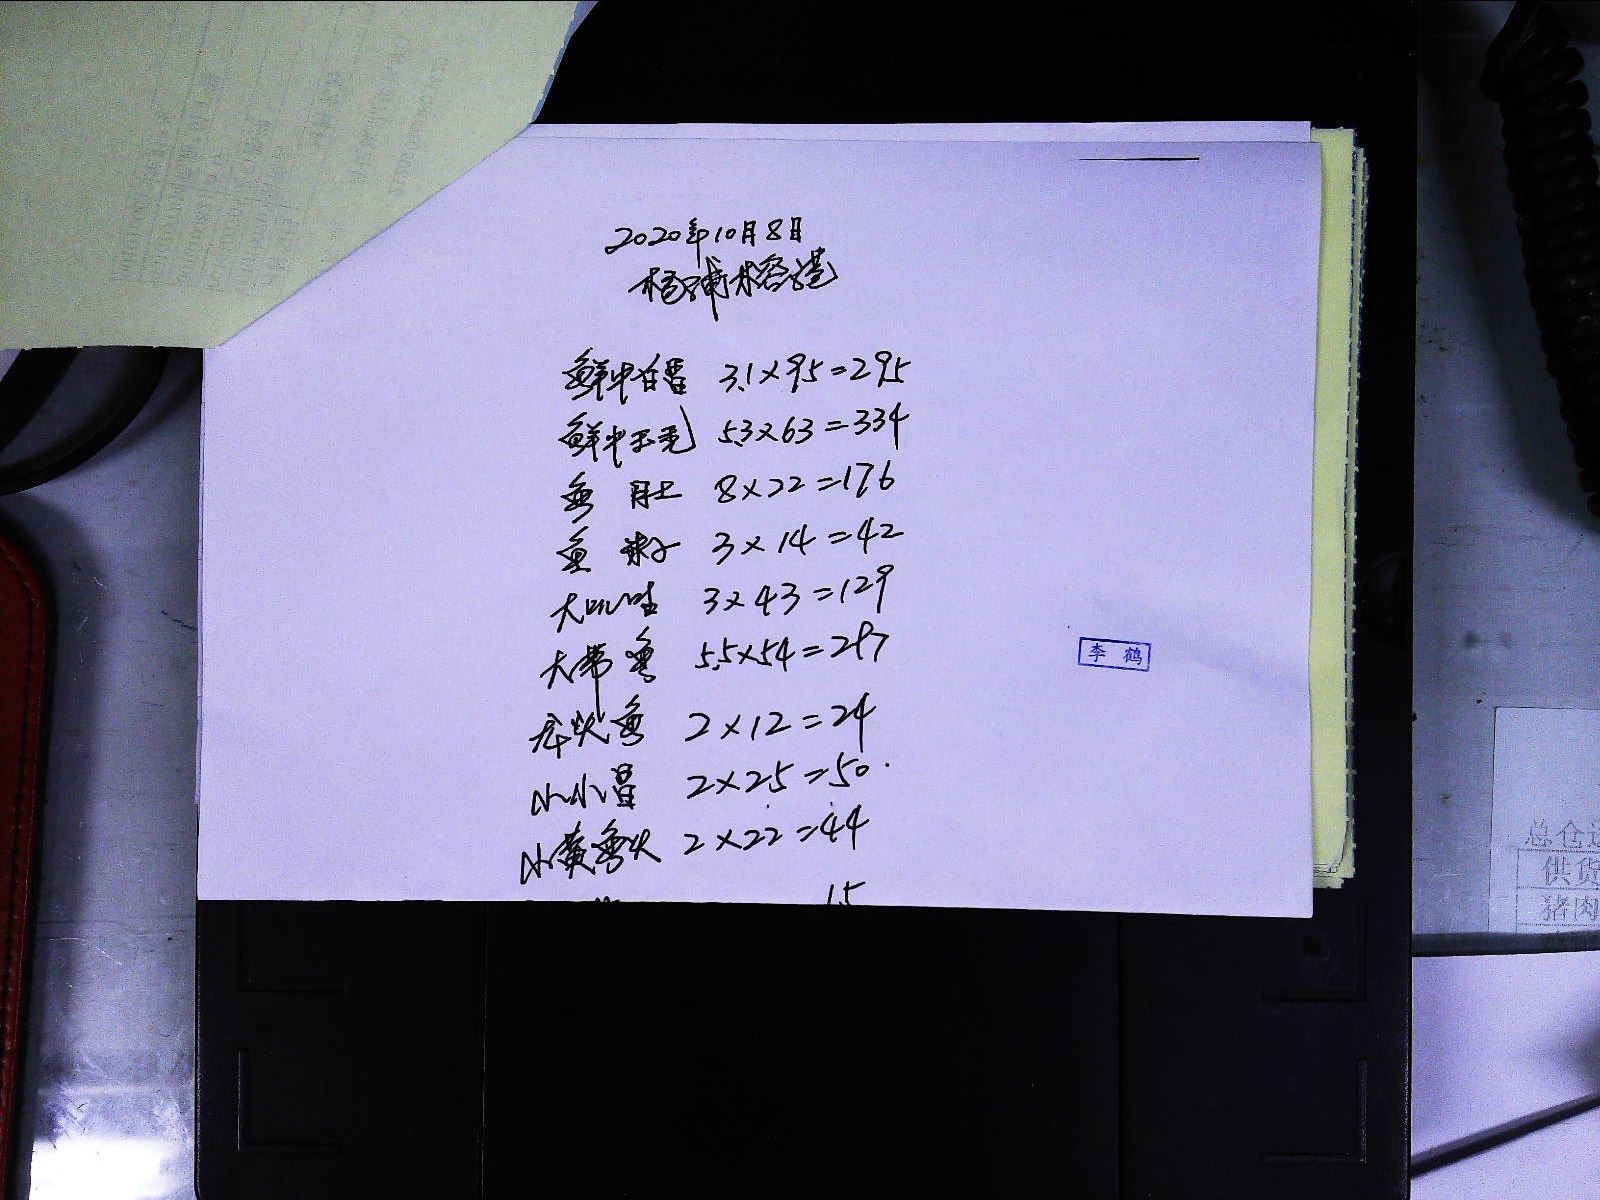 2020年10月8日
杨浦榕港
鲜中白昌 3.1×95=295
鲜中 5.3×63=334
鱼肚 8×22=176
鱼 3×14=42
大 3×43=129
大带鱼 5.5×54=297
龙头鱼 2×12=24
小小昌 2×25=50
小黄鱼头 2×22=44
15
李鹤
总仓
供货
猪肉